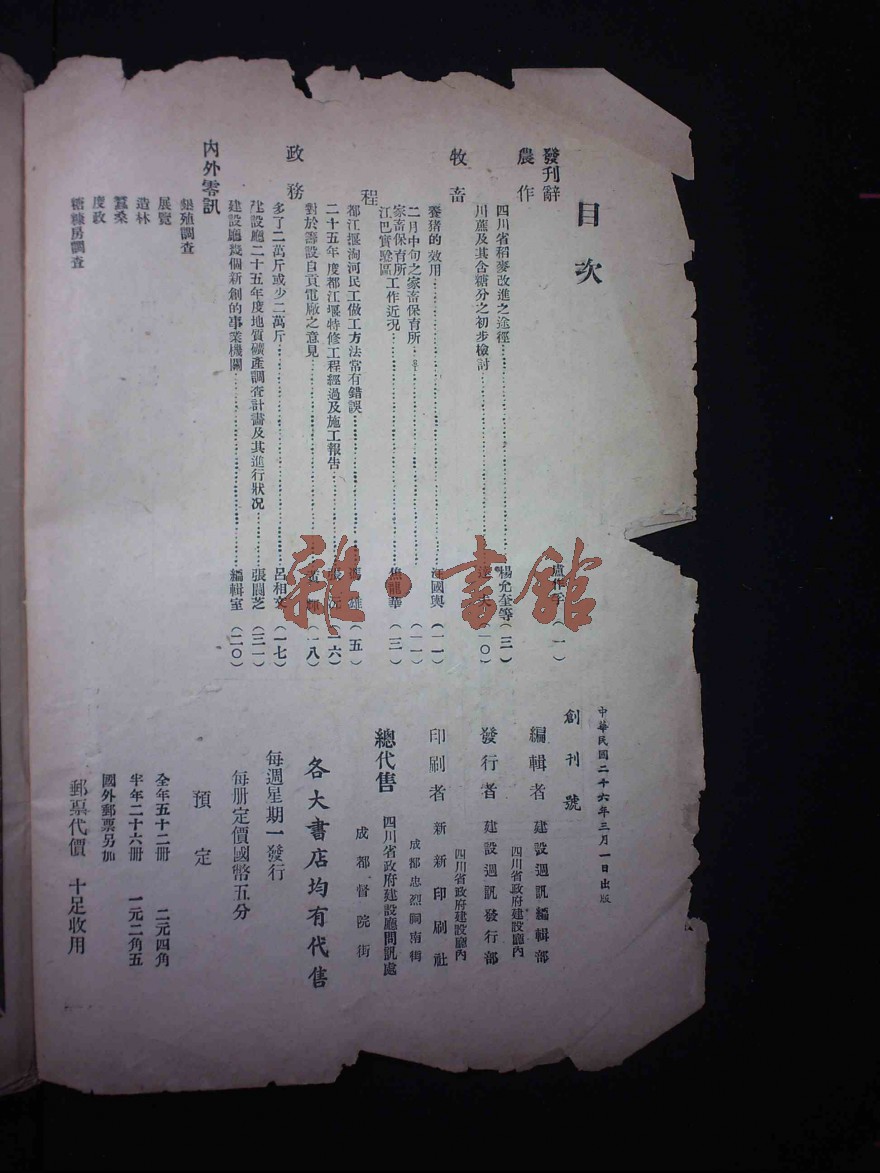 目次
發刊辭 (一)
農作
四川省稻麥改進之途徑 楊允奎等 (三)
川蔗及其含糖分之初步檢討 (一〇)
牧畜
養猪的效用 汪國輿 (一一)
二月中旬之家畜保育所 (一一)
家畜保育所江巴實驗區工作近況 焦龍華 (三)
程
都江堰淘河民工做工方法常有錯誤 雄 (五)
二十五年度都江堰特修工程經過及施工報告 張沅 (一六)
對於籌設自貢電廠之意見 黃輝 (一八)
政務
多了二萬斤或少二萬斤 呂相文 (一七)
建設廳二十五年度地質礦產調查計畫及其進行狀況 張圓芝 (三一)
建設廳幾個新創的事業機關 編輯室 (二〇)
內外零訊
墾殖調查
展覽
造林
蠶桑
度政
糖糠房調查
中華民國二十六年三月一日出版
創刊號
編輯者 建設週訊編輯部
四川省政府建設廳內
發行者 建設週訊發行部
四川省政府建設廳內
印刷者 新新印刷社
成都忠烈祠南街
總代售 四川省政府建設廳問訊處
成都督院街
各大書店均有代售
每週星期一發行
每册定價國幣五分
預定
全年五十二册 二元四角
半年二十六册 一元二角五
國外郵票另加
郵票代價 十足收用
雜·書館